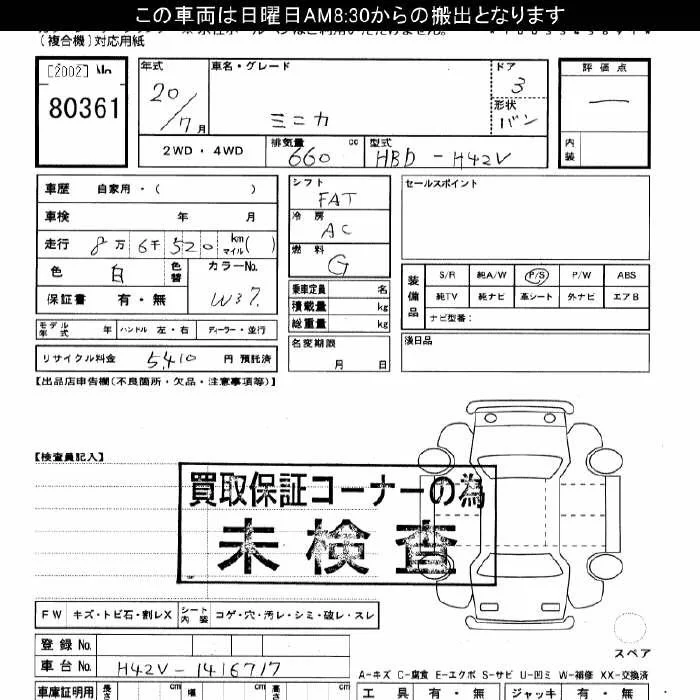 この車両は日曜日AM8:30からの搬出となります
(複合機)対応用紙
[2002] No. 80361
年式 20/7月
車名・グレード ミニカ
ドア 3
形状 バン
評価点 一
内装
2WD・4WD
排気量 660 cc
型式 HBD-H42V
車歴 自家用・( )
車検 年 月
走行 8万6千520 km マイル( )
色 白 色替
カラーNo. W37.
保証書 有・無
シフト FAT
冷房 AC
燃料 G
乗車定員 名
積載量 kg
総重量 kg
名変期限 月 日
セールスポイント
装備品
S/R 純A/W P/S P/W ABS
純TV 純ナビ 革シート 外ナビ エアB
ナビ型番:
モデル年式 年 ハンドル 左・右 ディーラー・並行
リサイクル料金 5,410 円 預託済
漢日品
【出品店申告欄(不良箇所・欠品・注意事項等)】
【検査員記入】
買取保証コーナーの為
未検査
FW キズ・トビ石・割レX シート内装 コゲ・穴・汚レ・シミ・破レ・スレ
スペア
登録No.
車台No. H42V-1416717
A-キズ C-腐食 E-エクボ S-サビ U-凹ミ W-補修 XX-交換済
車庫証明用 長さ cm 幅 cm 高さ cm
工具 有・無 ジャッキ 有・無